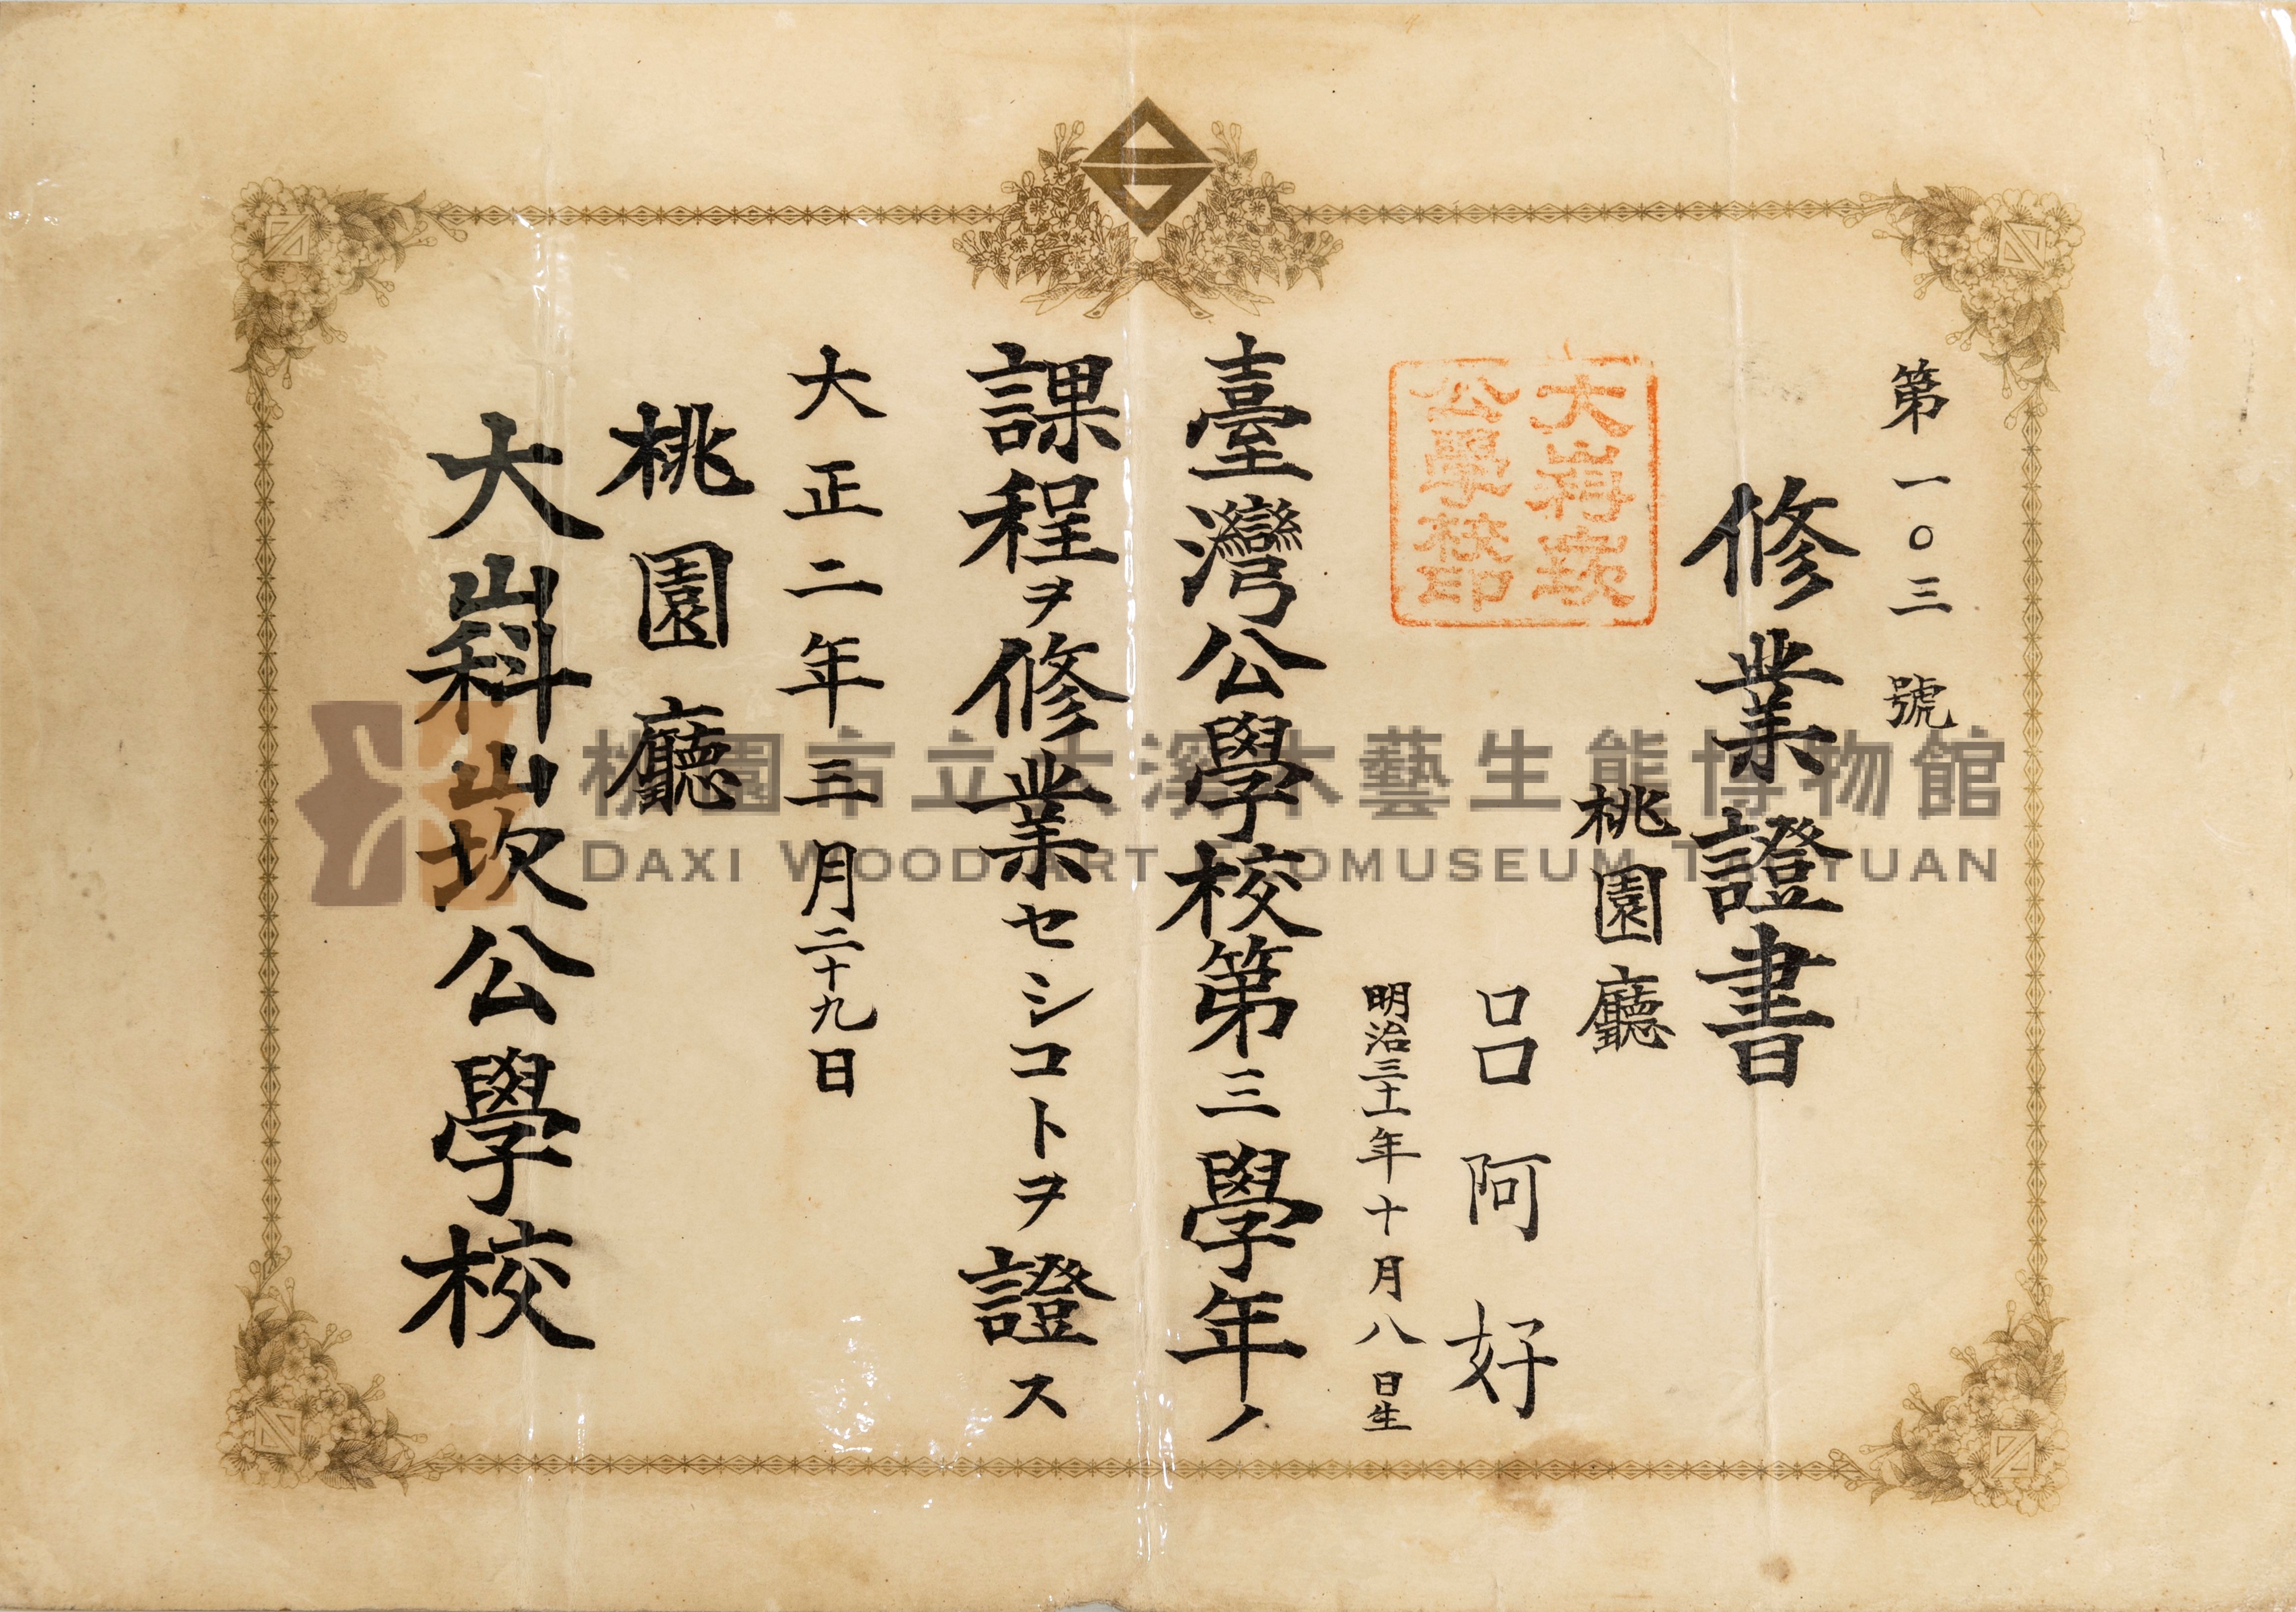 第一〇三號
修業證書
桃園廳
呂阿好
明治三十一年十月八日生
大嵙崁
公學校印
臺灣公學校第三學年ノ
課程ヲ修業セシコトヲ證ス
大正二年三月二十九日
桃園廳
大嵙崁公學校
桃園市立大溪木藝生態博物館
DAXI WOOD ART ECOMUSEUM TAOYUAN